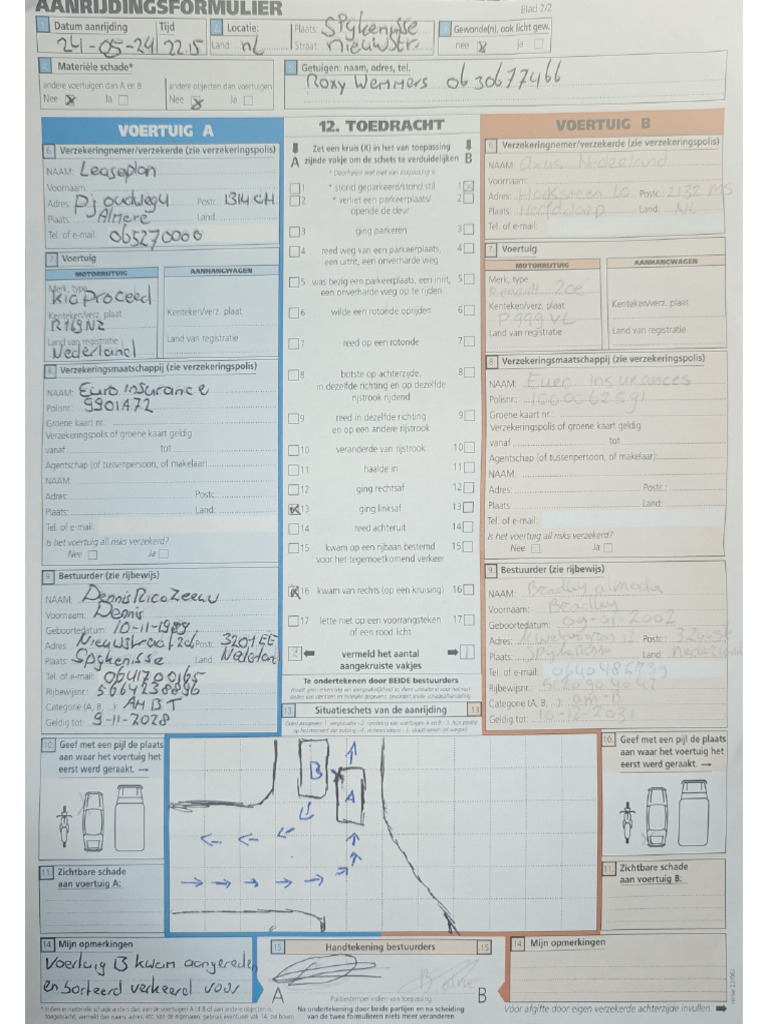 AANRIJDINGSFORMULIER
Blad 2/2
1 Datum aanrijding Tijd
24-05-24 22.15
2 Locatie:
Land: nl
Plaats: Spijkenisse
Straat: nieuwstr.
3 Gewonde(n), ook licht gew.
nee ja
4 Materiële schade*
andere voertuigen dan A en B
Nee Ja
andere objecten dan voertuigen
Nee Ja
5 Getuigen: naam, adres, tel.
Roxy Wemmers 0630677466
VOERTUIG A
6 Verzekeringnemer/verzekerde (zie verzekeringspolis)
NAAM: Leaseplan
Voornaam:
Adres: Postc: 1314 CH
Plaats: Almere Land:
Tel. of e-mail:
7 Voertuig
MOTORRIJTUIG AANHANGWAGEN
Merk, type
Kia Proceed
Kenteken/verz. plaat Kenteken/verz. plaat
Land van registratie Land van registratie
Nederland
8 Verzekeringsmaatschappij (zie verzekeringspolis)
NAAM: Euro insurance
Polisnr.: 9901472
Groene kaart nr.:
Verzekeringspolis of groene kaart geldig
vanaf tot
Agentschap (of tussenpersoon, of makelaar):
NAAM:
Adres: Postc:
Plaats: Land:
Tel. of e-mail:
Is het voertuig all risks verzekerd?
Nee Ja
9 Bestuurder (zie rijbewijs)
NAAM: Dennis Rico Zeeuw
Voornaam: Dennis
Geboortedatum: 10-11-1989
Adres: Nieuwstraat 2d Postc: 3201 EE
Plaats: Spijkenisse Land:
Tel. of e-mail: 0641700165
Rijbewijsnr.: 5664238896
Categorie (A, B, ...): AM B T
Geldig tot: 9-11-2028
10 Geef met een pijl de plaats
aan waar het voertuig het
eerst werd geraakt.
11 Zichtbare schade
aan voertuig A:
14 Mijn opmerkingen
Voertuig B kwam aangereden
en sorteerd verkeerd voor
12. TOEDRACHT
Zet een kruis (X) in het van toepassing
A zijnde vakje om de schets te verduidelijken B
* Doorhalen wat niet van toepassing is
1 * stond geparkeerd/stond stil 1
2 * verliet een parkeerplaats/ 2
opende de deur
3 ging parkeren 3
4 reed weg van een parkeerplaats, 4
een uitrit, een onverharde weg
5 was bezig een parkeerplaats, een inrit, 5
een onverharde weg op te rijden
6 wilde een rotonde oprijden 6
7 reed op een rotonde 7
8 botste op achterzijde, 8
in dezelfde richting en op dezelfde
rijstrook rijdend
9 reed in dezelfde richting 9
en op een andere rijstrook
10 veranderde van rijstrook 10
11 haalde in 11
12 ging rechtsaf 12
13 ging linksaf 13
14 reed achteruit 14
15 kwam op een rijbaan bestemd 15
voor het tegemoetkomend verkeer
16 kwam van rechts (op een kruising) 16
17 lette niet op een voorrangsteken 17
of een rood licht
2 vermeld het aantal 1
aangekruiste vakjes
Te ondertekenen door BEIDE bestuurders
13 Situatieschets van de aanrijding 13
B
A
15 Handtekening bestuurders 15
A B
Na ondertekening door beide partijen en na scheiding
van de twee formulieren niets meer veranderen
VOERTUIG B
6 Verzekeringnemer/verzekerde (zie verzekeringspolis)
NAAM: Axus Nederland
Voornaam:
Adres: Postc: 2132 MS
Plaats: Hoofddorp Land: NL
Tel. of e-mail:
7 Voertuig
MOTORRIJTUIG AANHANGWAGEN
Merk, type
Renault Zoe
Kenteken/verz. plaat Kenteken/verz. plaat
Land van registratie Land van registratie
8 Verzekeringsmaatschappij (zie verzekeringspolis)
NAAM: Euro insurances
Polisnr.:
Groene kaart nr.:
Verzekeringspolis of groene kaart geldig
vanaf tot
Agentschap (of tussenpersoon, of makelaar):
NAAM:
Adres: Postc:
Plaats: Land:
Tel. of e-mail:
Is het voertuig all risks verzekerd?
Nee Ja
9 Bestuurder (zie rijbewijs)
NAAM: Bradley almeida
Voornaam: Bradley
Geboortedatum: 09-01-2002
Adres: Postc:
Plaats: Spijkenisse Land: nederland
Tel. of e-mail: 0640486739
Rijbewijsnr.:
Categorie (A, B, ...): am-B
Geldig tot: 10-12-2031
10 Geef met een pijl de plaats
aan waar het voertuig het
eerst werd geraakt.
11 Zichtbare schade
aan voertuig B:
14 Mijn opmerkingen
Voor afgifte door eigen verzekerde achterzijde invullen